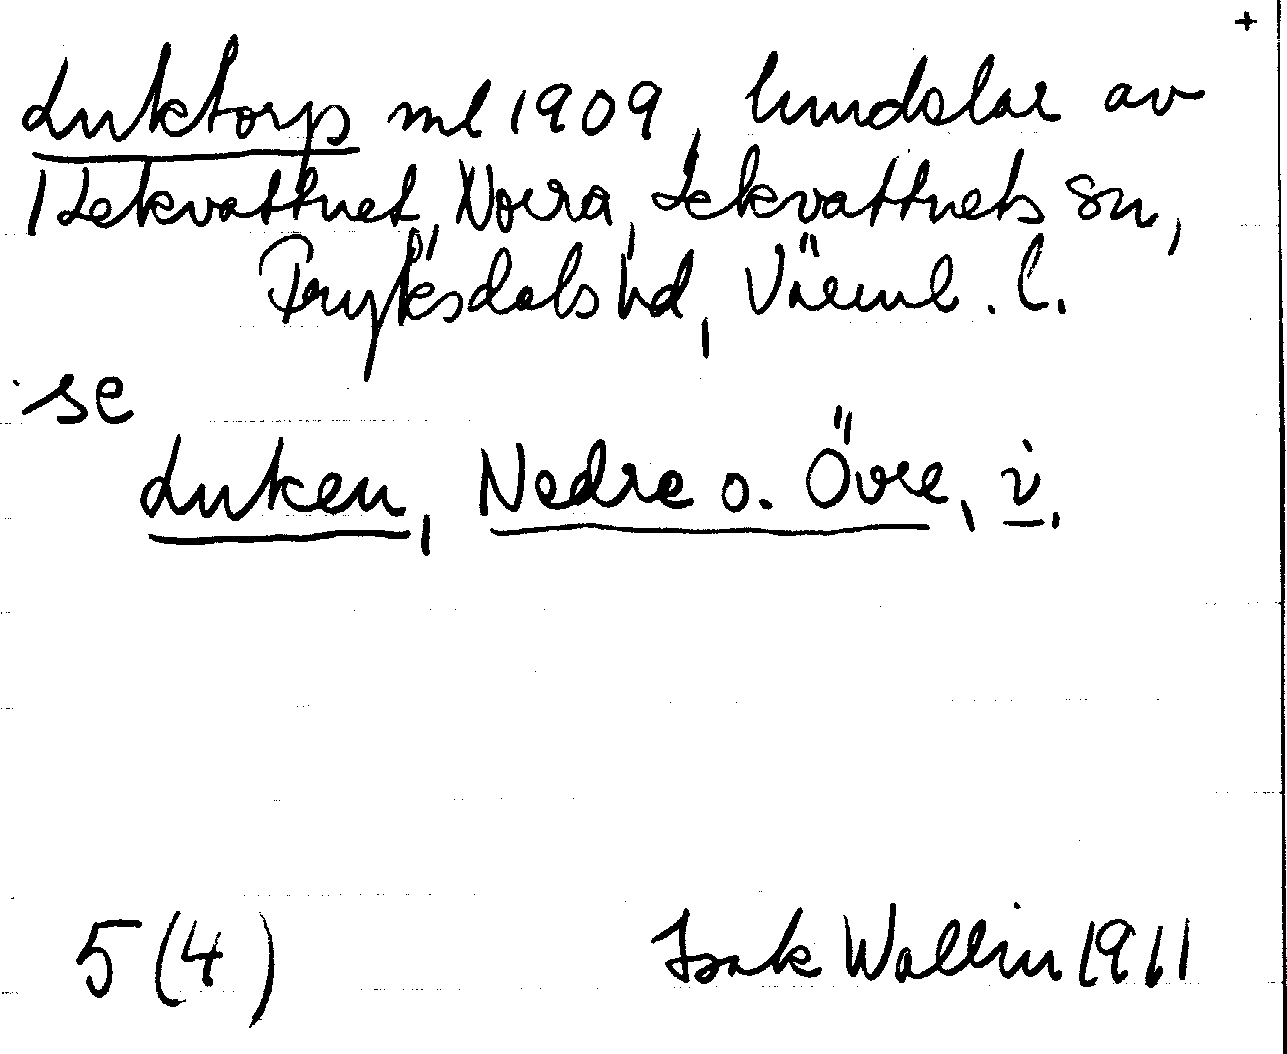 +
Luktorp ml 1909, hmdslar av
1 Lekvattnet, Norra, Lekvattnets sn,
Fryksdals hd, Värml. l.
se
Luken, Nedre o. Övre, i.
5(4) Isak Wallin 1961